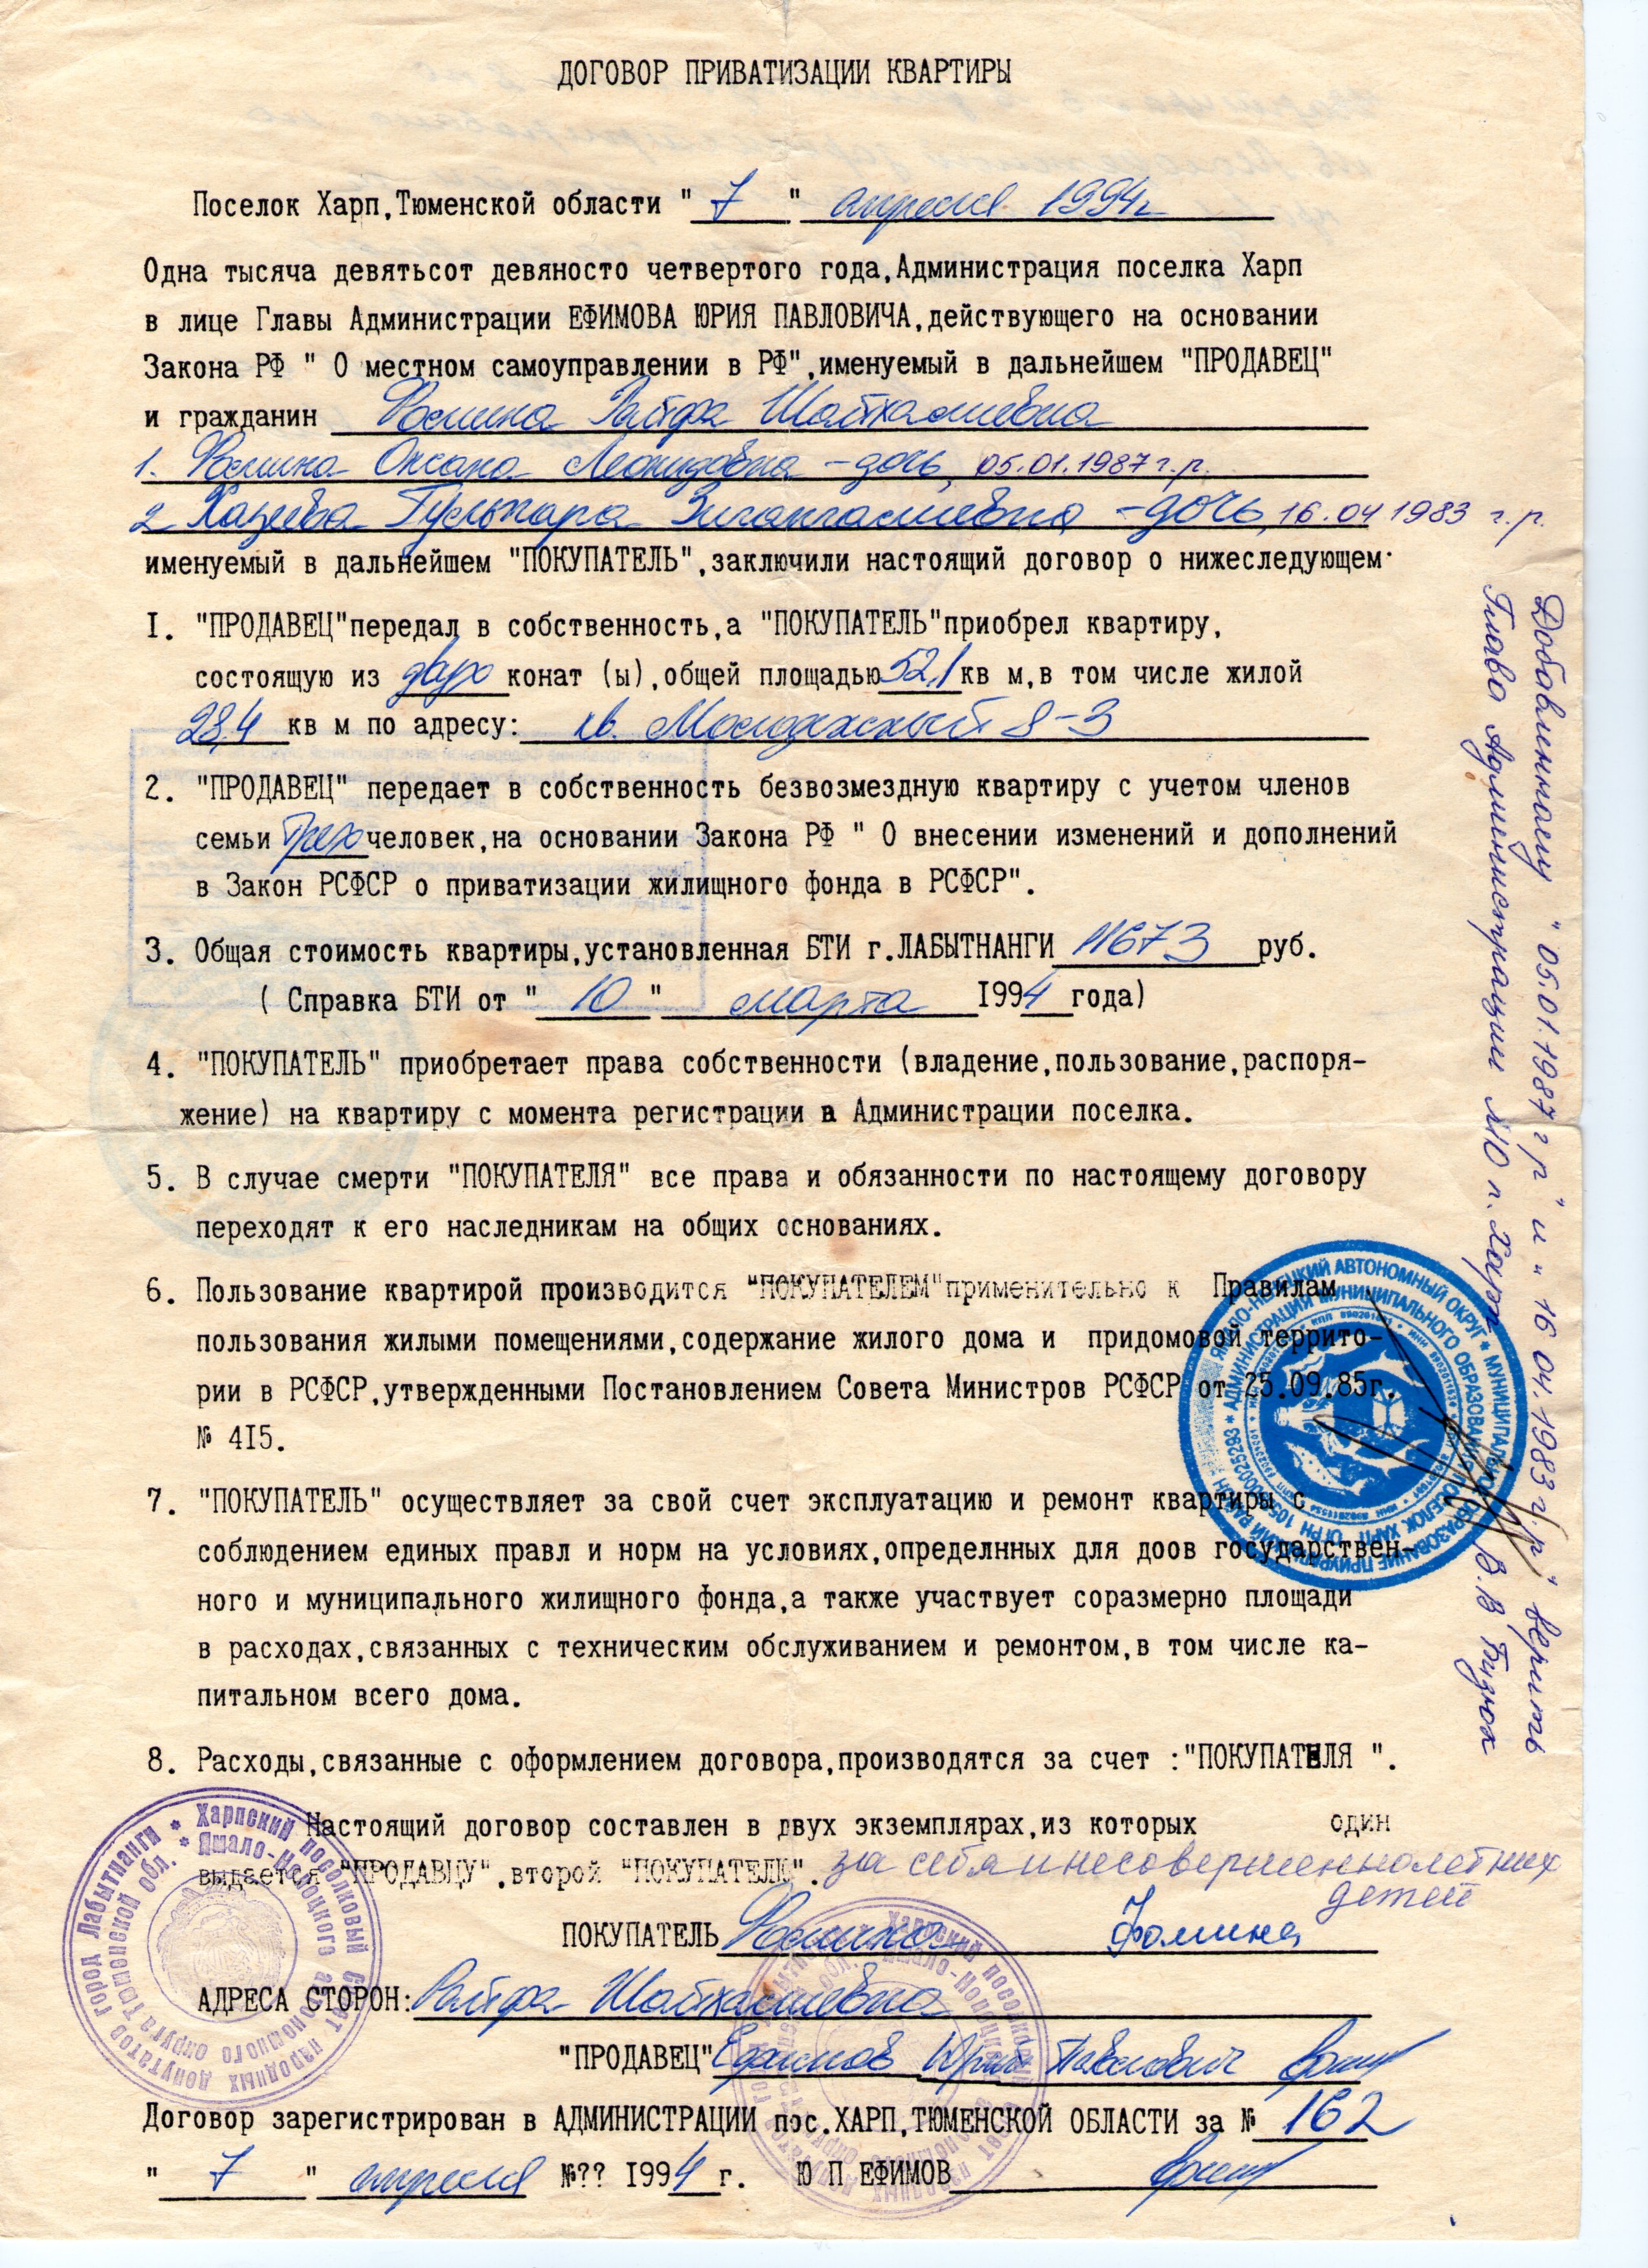 ДОГОВОР ПРИВАТИЗАЦИИ КВАРТИРЫ
Поселок Харп,Тюменской области " 7 " апреля 1994г
Одна тысяча девятьсот девяносто четвертого года,Администрация поселка Харп
в лице Главы Администрации ЕФИМОВА ЮРИЯ ПАВЛОВИЧА,действующего на основании
Закона РФ " О местном самоуправлении в РФ",именуемый в дальнейшем "ПРОДАВЕЦ"
и гражданин Фомина Райфа Шайхалиевна
1. Фомина Оксана Леонидовна - дочь, 05.01.1987 г.р.
2 Хазеева Гульнара -дочь, 16.04 1983 г.р.
именуемый в дальнейшем "ПОКУПАТЕЛЬ",заключили настоящий договор о нижеследующем·
I. "ПРОДАВЕЦ"передал в собственность,а "ПОКУПАТЕЛЬ"приобрел квартиру,
состоящую из двух конат (ы),общей площадью 52,1 кв м,в том числе жилой
28,4 кв м по адресу: кв. Молодежный 8-3
2. "ПРОДАВЕЦ" передает в собственность безвозмездную квартиру с учетом членов
семьи трех человек,на основании Закона РФ " О внесении изменений и дополнений
в Закон РСФСР о приватизации жилищного фонда в РСФСР".
3. Общая стоимость квартиры,установленная БТИ г.ЛАБЫТНАНГИ 11673 руб.
( Справка БТИ от " 10 " марта I994 года)
4. "ПОКУПАТЕЛЬ" приобретает права собственности (владение,пользование,распоря-
жение) на квартиру с момента регистрации в Администрации поселка.
5. В случае смерти "ПОКУПАТЕЛЯ" все права и обязанности по настоящему договору
переходят к его наследникам на общих основаниях.
6. Пользование квартирой производится "ПОКУПАТЕЛЕМ"применительно к Правилам
пользования жилыми помещениями,содержание жилого дома и придомовой террито-
рии в РСФСР,утвержденными Постановлением Совета Министров РСФСР от 25.09.85г.
№ 4I5.
7. "ПОКУПАТЕЛЬ" осуществляет за свой счет эксплуатацию и ремонт квартиры с
соблюдением единых правл и норм на условиях,определнных для доов государствен-
ного и муниципального жилищного фонда,а также участвует соразмерно площади
в расходах,связанных с техническим обслуживанием и ремонтом,в том числе ка-
питальном всего дома.
8. Расходы,связанные с оформлением договора,производятся за счет :"ПОКУПАТЕЛЯ ".
Настоящий договор составлен в двух экземплярах,из которых один
выдается "ПРОДАВЦУ",второй "ПОКУПАТЕЛЮ". за себя и несовершеннолетних
детей
ПОКУПАТЕЛЬ Фомина Фомина
АДРЕСА СТОРОН: Райфа Шайхалиевна
"ПРОДАВЕЦ" Ефимов Юрий Павлович
Договор зарегистрирован в АДМИНИСТРАЦИИ пос.ХАРП,ТЮМЕНСКОЙ ОБЛАСТИ за № 162
" 7 " апреля №?? I994 г. Ю П ЕФИМОВ
Добавленному "05.01.1987 г р" и "16 04.1983 г.р" верить
Глава Администрации МО п. Харп В.В.
ЯМАЛО-НЕНЕЦКИЙ АВТОНОМНЫЙ ОКРУГ * МУНИЦИПАЛЬНОЕ ОБРАЗОВАНИЕ ПРИУРАЛЬСКИЙ РАЙОН
* АДМИНИСТРАЦИЯ МУНИЦИПАЛЬНОГО ОБРАЗОВАНИЯ ПОСЕЛОК ХАРП
* Харпский поселковый Совет народных депутатов город Лабытнанги
* Ямало-Ненецкого автономного округа Тюменской обл.